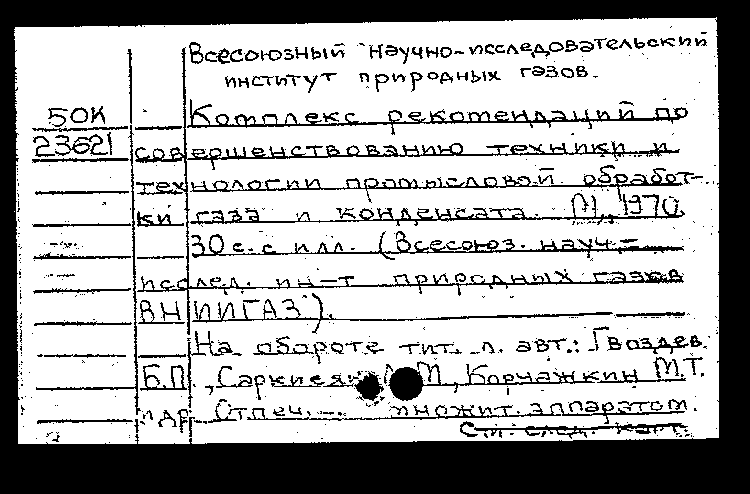 Всесоюзный научно-исследовательский
институт природных газов.
50К Комплекс рекомендаций по
23621 совершенствованию техники и
технологии промысловой обработ-
ки газа и конденсата. М., 1970.
30 с. с илл. (Всесоюз. науч.-
исслед. ин-т природных газов
ВНИИГАЗ).
На обороте тит. л. авт.: Гвоздев
Б.П., М., Корчажкин М.Т.
и др. Отпеч. множит. аппаратом.
См. след. карт.